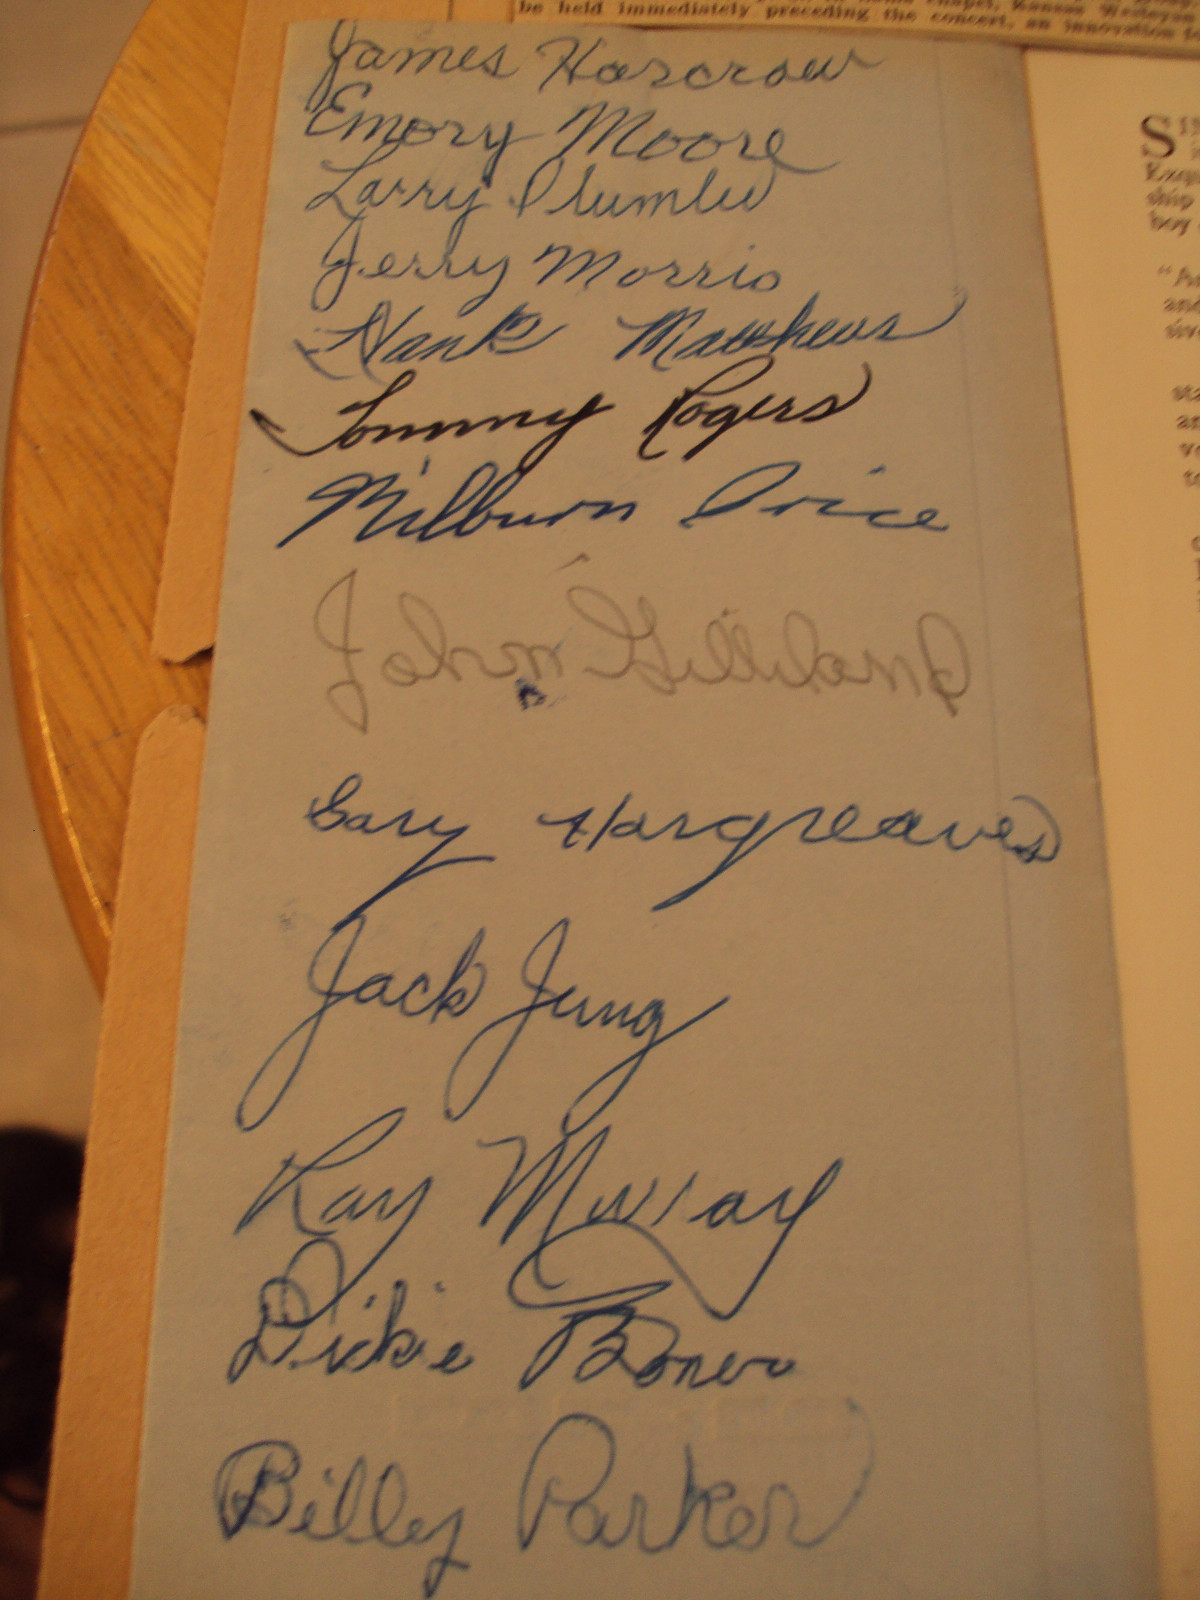 be held immediately preceding the concert, an innovation
James Harcrow
Emory Moore
Larry Plumlee
Jerry Morris
Hank Matthews
Tommy Rogers
Milburn Price
John Gilliland
Gary Hargreaves
Jack Jung
Ray Murray
Dickie Boner
Billy Parker
ship
boy